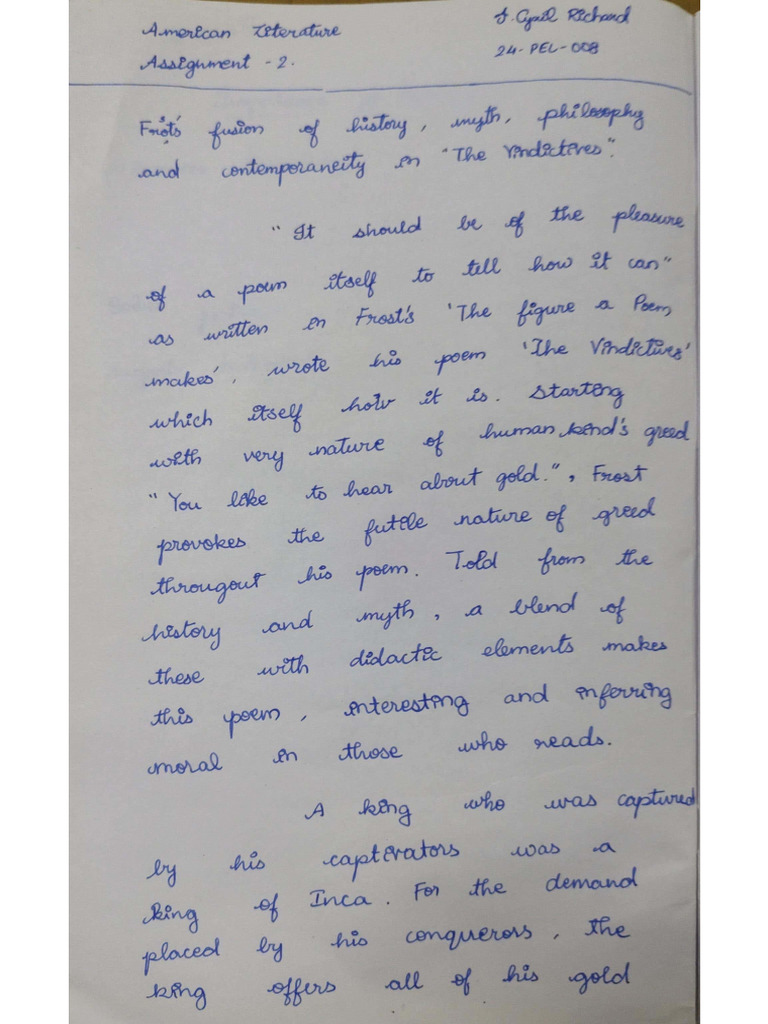 American Literature
J. Cyril Richard
Assignment - 2.
24-PEL-008
Frost's fusion of history, myth, philosophy
and contemporaneity in "The Vindictives".
"It should be of the pleasure
of a poem itself to tell how it can"
as written in Frost's 'The figure a Poem
makes', wrote his poem 'The Vindictives'
which itself how it is. Starting
with very nature of human kind's greed
"You like to hear about gold.", Frost
provokes the futile nature of greed
througout his poem. Told from the
history and myth, a blend of
these with didactic elements makes
this poem, interesting and inferring
moral in those who reads.
A king who was captured
by his captivators was a
king of Inca. For the demand
placed by his conquerors, the
king offers all of his gold